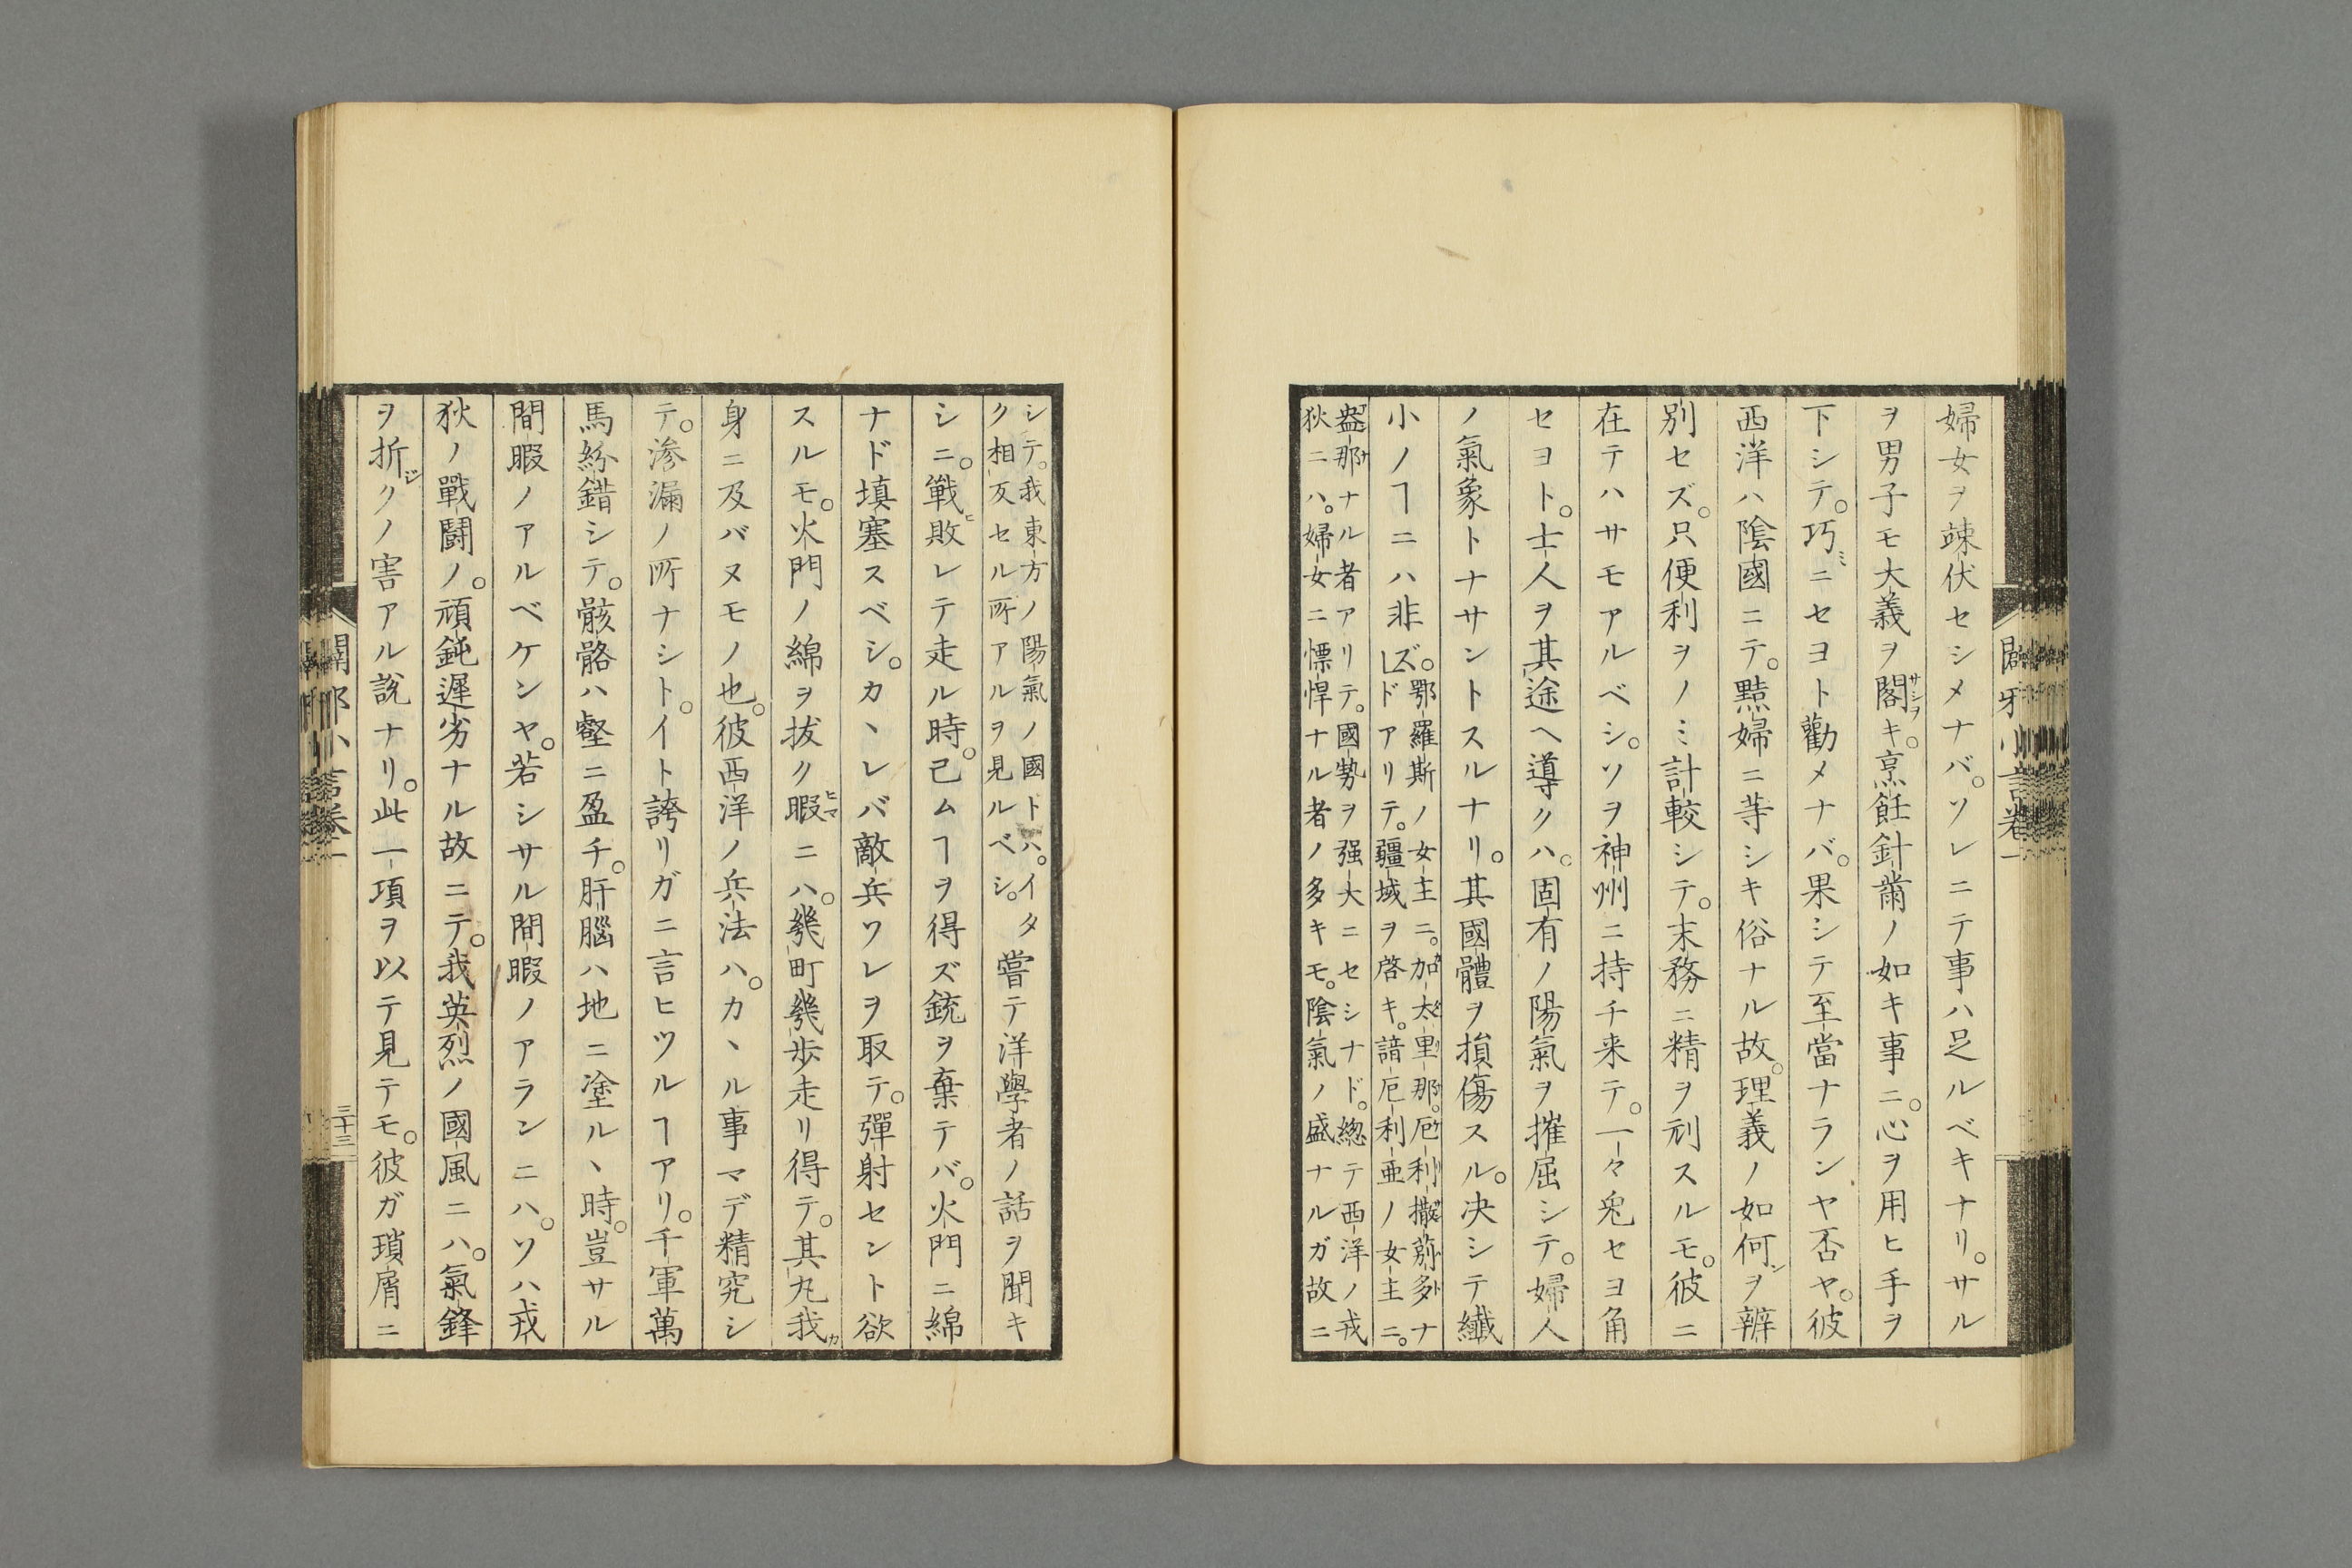 婦女ヲ竦伏セシメナバ。ソレニテ事ハ足ルベキナリ。サル
ヲ男子モ大義ヲ閣サシヲキ。烹飪針黹ノ如キ事ニ。心ヲ用ヒ手ヲ
下シテ。巧ミニセヨト勸メナバ。果シテ至當ナランヤ否ヤ。彼
西洋ハ陰國ニテ。黠婦ニ等シキ俗ナル故。理義ノ如何ンヲ辨
別セズ。只便利ヲノミ計較シテ。末務ニ精ヲ刓スルモ。彼ニ
在テハサモアルベシ。ソヲ神州ニ持チ来テ。一々兎セヨ角
セヨト。士人ヲ其途ヘ導クハ。固有ノ陽氣ヲ摧屈シテ。婦人
ノ氣象トナサントスルナリ。其國體ヲ損傷スル。决シテ纎
小ノヿニハ非ズ。
鄂羅斯ノ女主ニ。加太里那。厄利撒多ナ
ドアリテ。疆域ヲ啓キ。諳厄利亜ノ女主ニ。
那ナル者アリテ。國勢ヲ强大ニセシナド。緫テ西洋ノ戎
狄ニハ。婦女ニ慓悍ナル者ノ多キモ。陰氣ノ盛ナルガ故ニ
闢邪小言卷一
シテ。我東方ノ陽氣ノ國トハ。イタ
ク相反セル所アルヲ見ルベシ。
嘗テ洋學者ノ話ヲ聞キ
シニ。戰ヒ敗レテ走ル時。己ムヿヲ得ズ銃ヲ棄テバ。火門ニ綿
ナド填塞スベシ。カヽレバ敵兵ワレヲ取テ。彈射セント欲
スルモ。火門ノ綿ヲ拔ク暇ヒマニハ。幾町幾歩走リ得テ。其丸我カ
身ニ及バヌモノ也。彼西洋ノ兵法ハ。カヽル事マデ精究シ
テ。滲漏ノ所ナシト。イト誇リガニ言ヒツルヿアリ。千軍萬
馬紛錯シテ。骸骼ハ壑ニ盈チ。肝腦ハ地ニ塗ルヽ時。豈サル
間暇ノアルベケンヤ。若シサル間暇ノアランニハ。ソハ戎
狄ノ戰鬪ノ。頑鈍遲劣ナル故ニテ。我英烈ノ國風ニハ。氣鋒
ヲ折ジクノ害アル說ナリ。此一項ヲ以テ見テモ。彼ガ瑣屑ニ
闢邪小言卷一
三十三